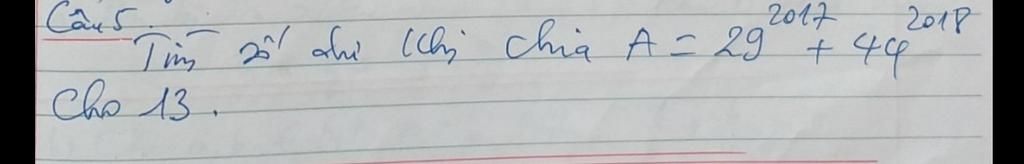 Câu 5.
Tìm số dư khi chia A = 29^2017 + 44^2018
cho 13.